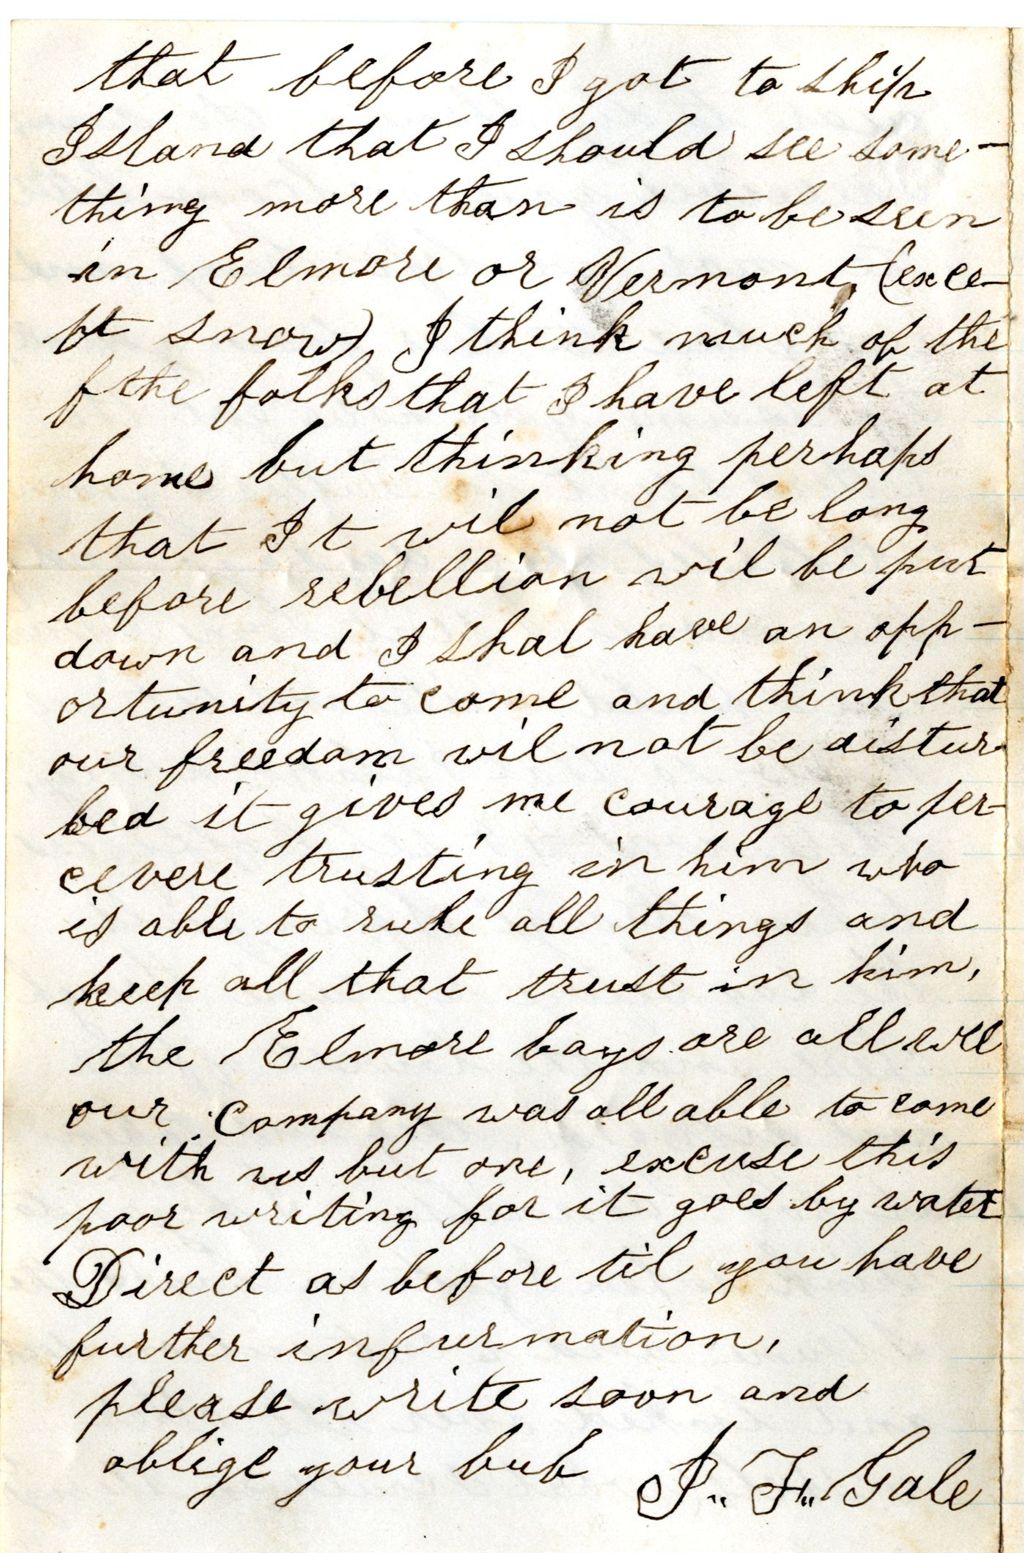 that before I got to ship
Island that I should see some-
thing more than is to be seen
in Elmore or Vermont, (exce-
pt snow) I think much of the
f the folks that I have left at
home but thinking perhaps
that I t wil not be long
before rebellion wil be put
down and I shal have an opp-
ortunity to come and think that
our freedom wil not be distur-
bed it gives me courage to per-
cevere trusting in him who
is able to rule all things and
keep all that trust in him,
the Elmore boys are all well
our company was all able to come
with us but one, excuse this
poor writing for it goes by water
Direct as before til you have
further infurmation,
please write soon and
oblige your bub J.. F.. Gale